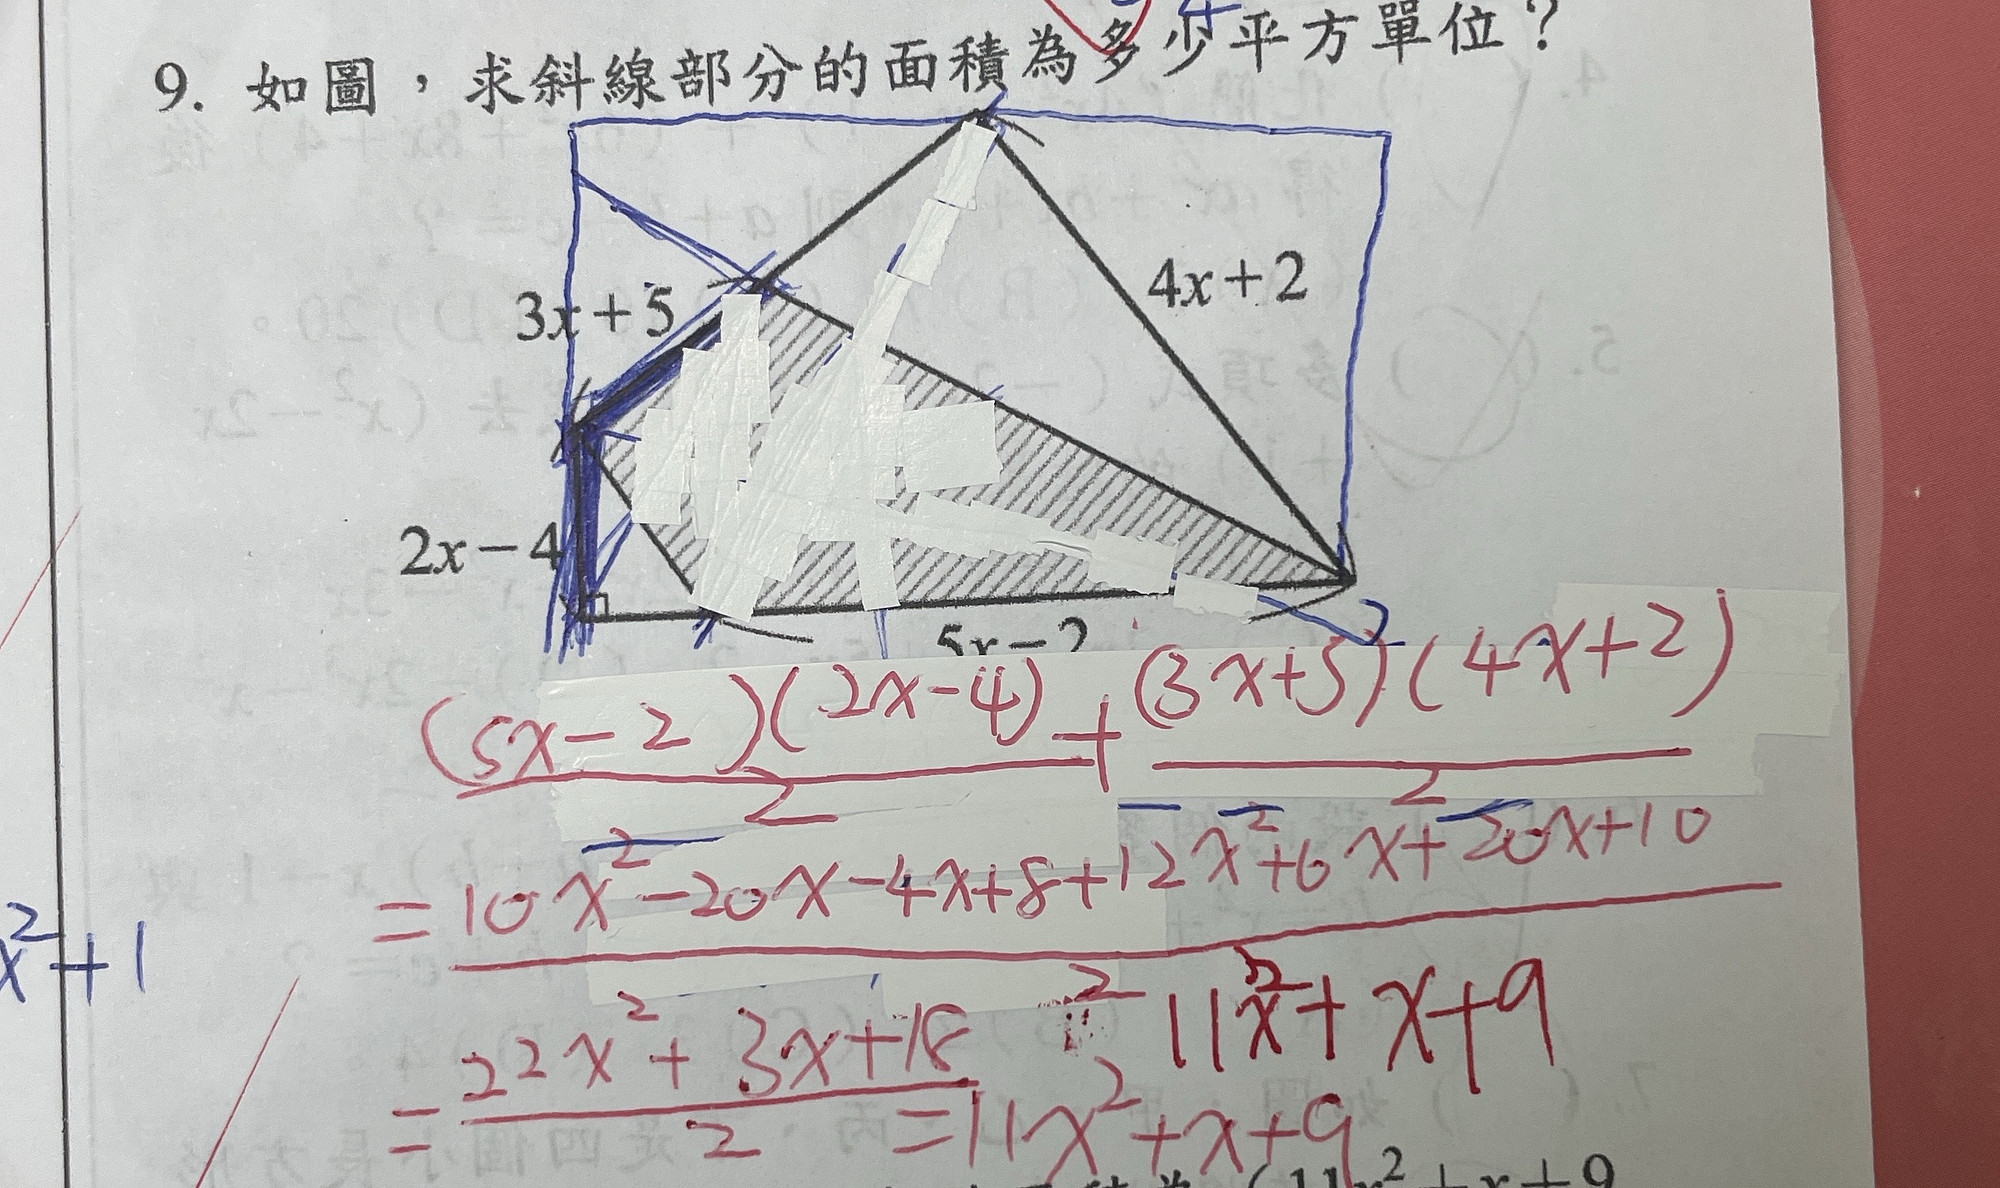 9. 如圖，求斜線部分的面積為多少平方單位？
3x+5
4x+2
2x-4
5x-2
(5x-2)(2x-4)/2 + (3x+5)(4x+2)/2
= (10x²-20x-4x+8+12x²+6x+20x+10)/2
x²+1
11x²+x+9
= (22x²+3x+18)/2 = 11x²+x+9
(11x²+x+9